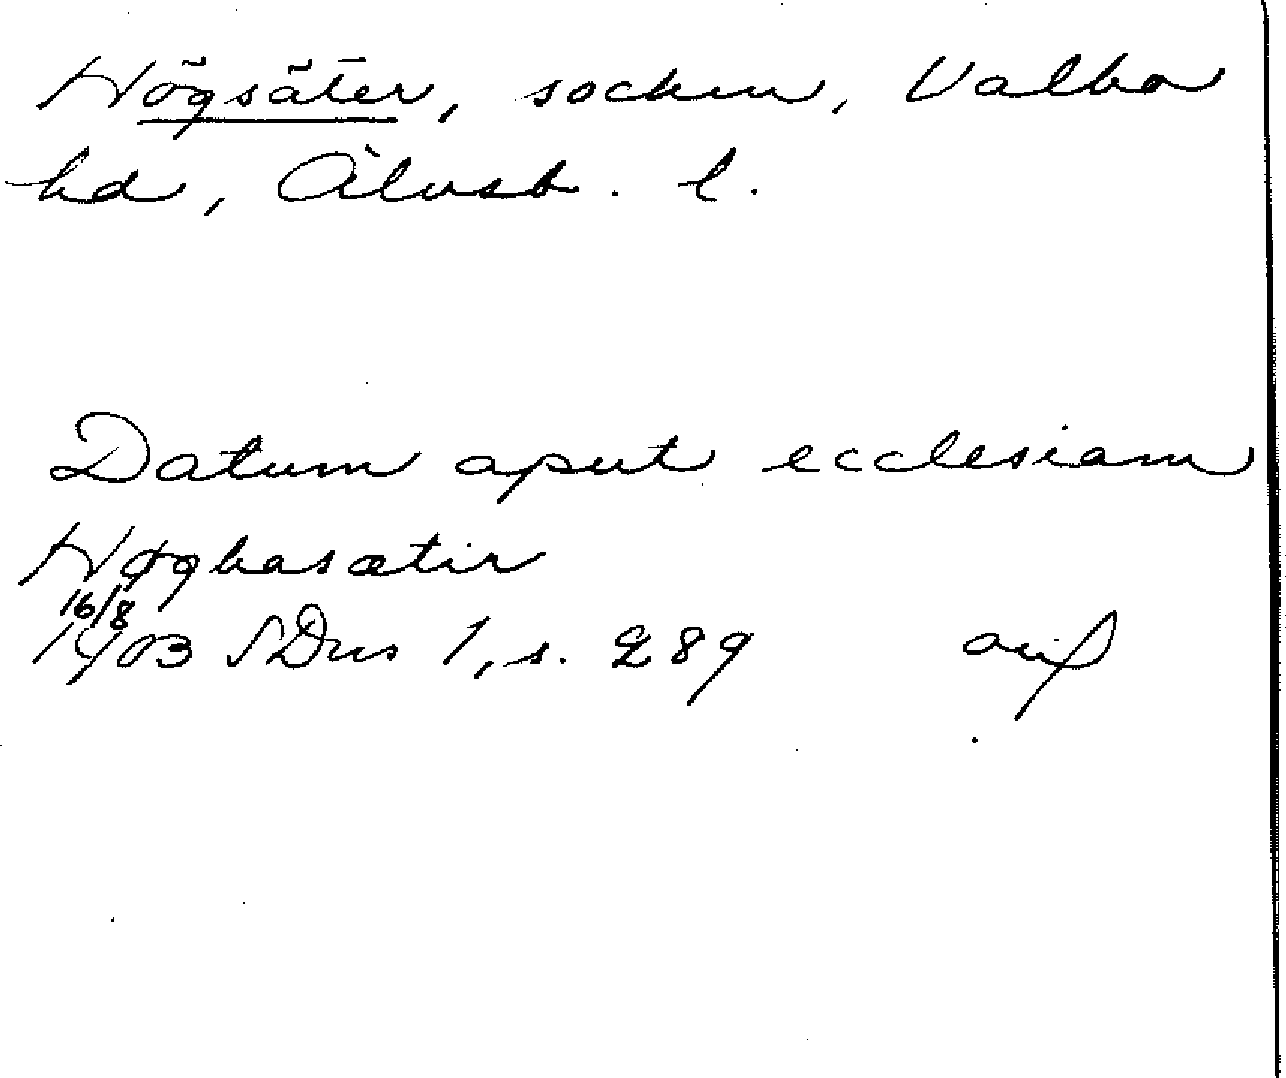 Högsäter, socken, Valbo
hd, Älvsb. l.
Datum aput ecclesiam
Høghasætir
16/8
1403 SDns 1, s. 289